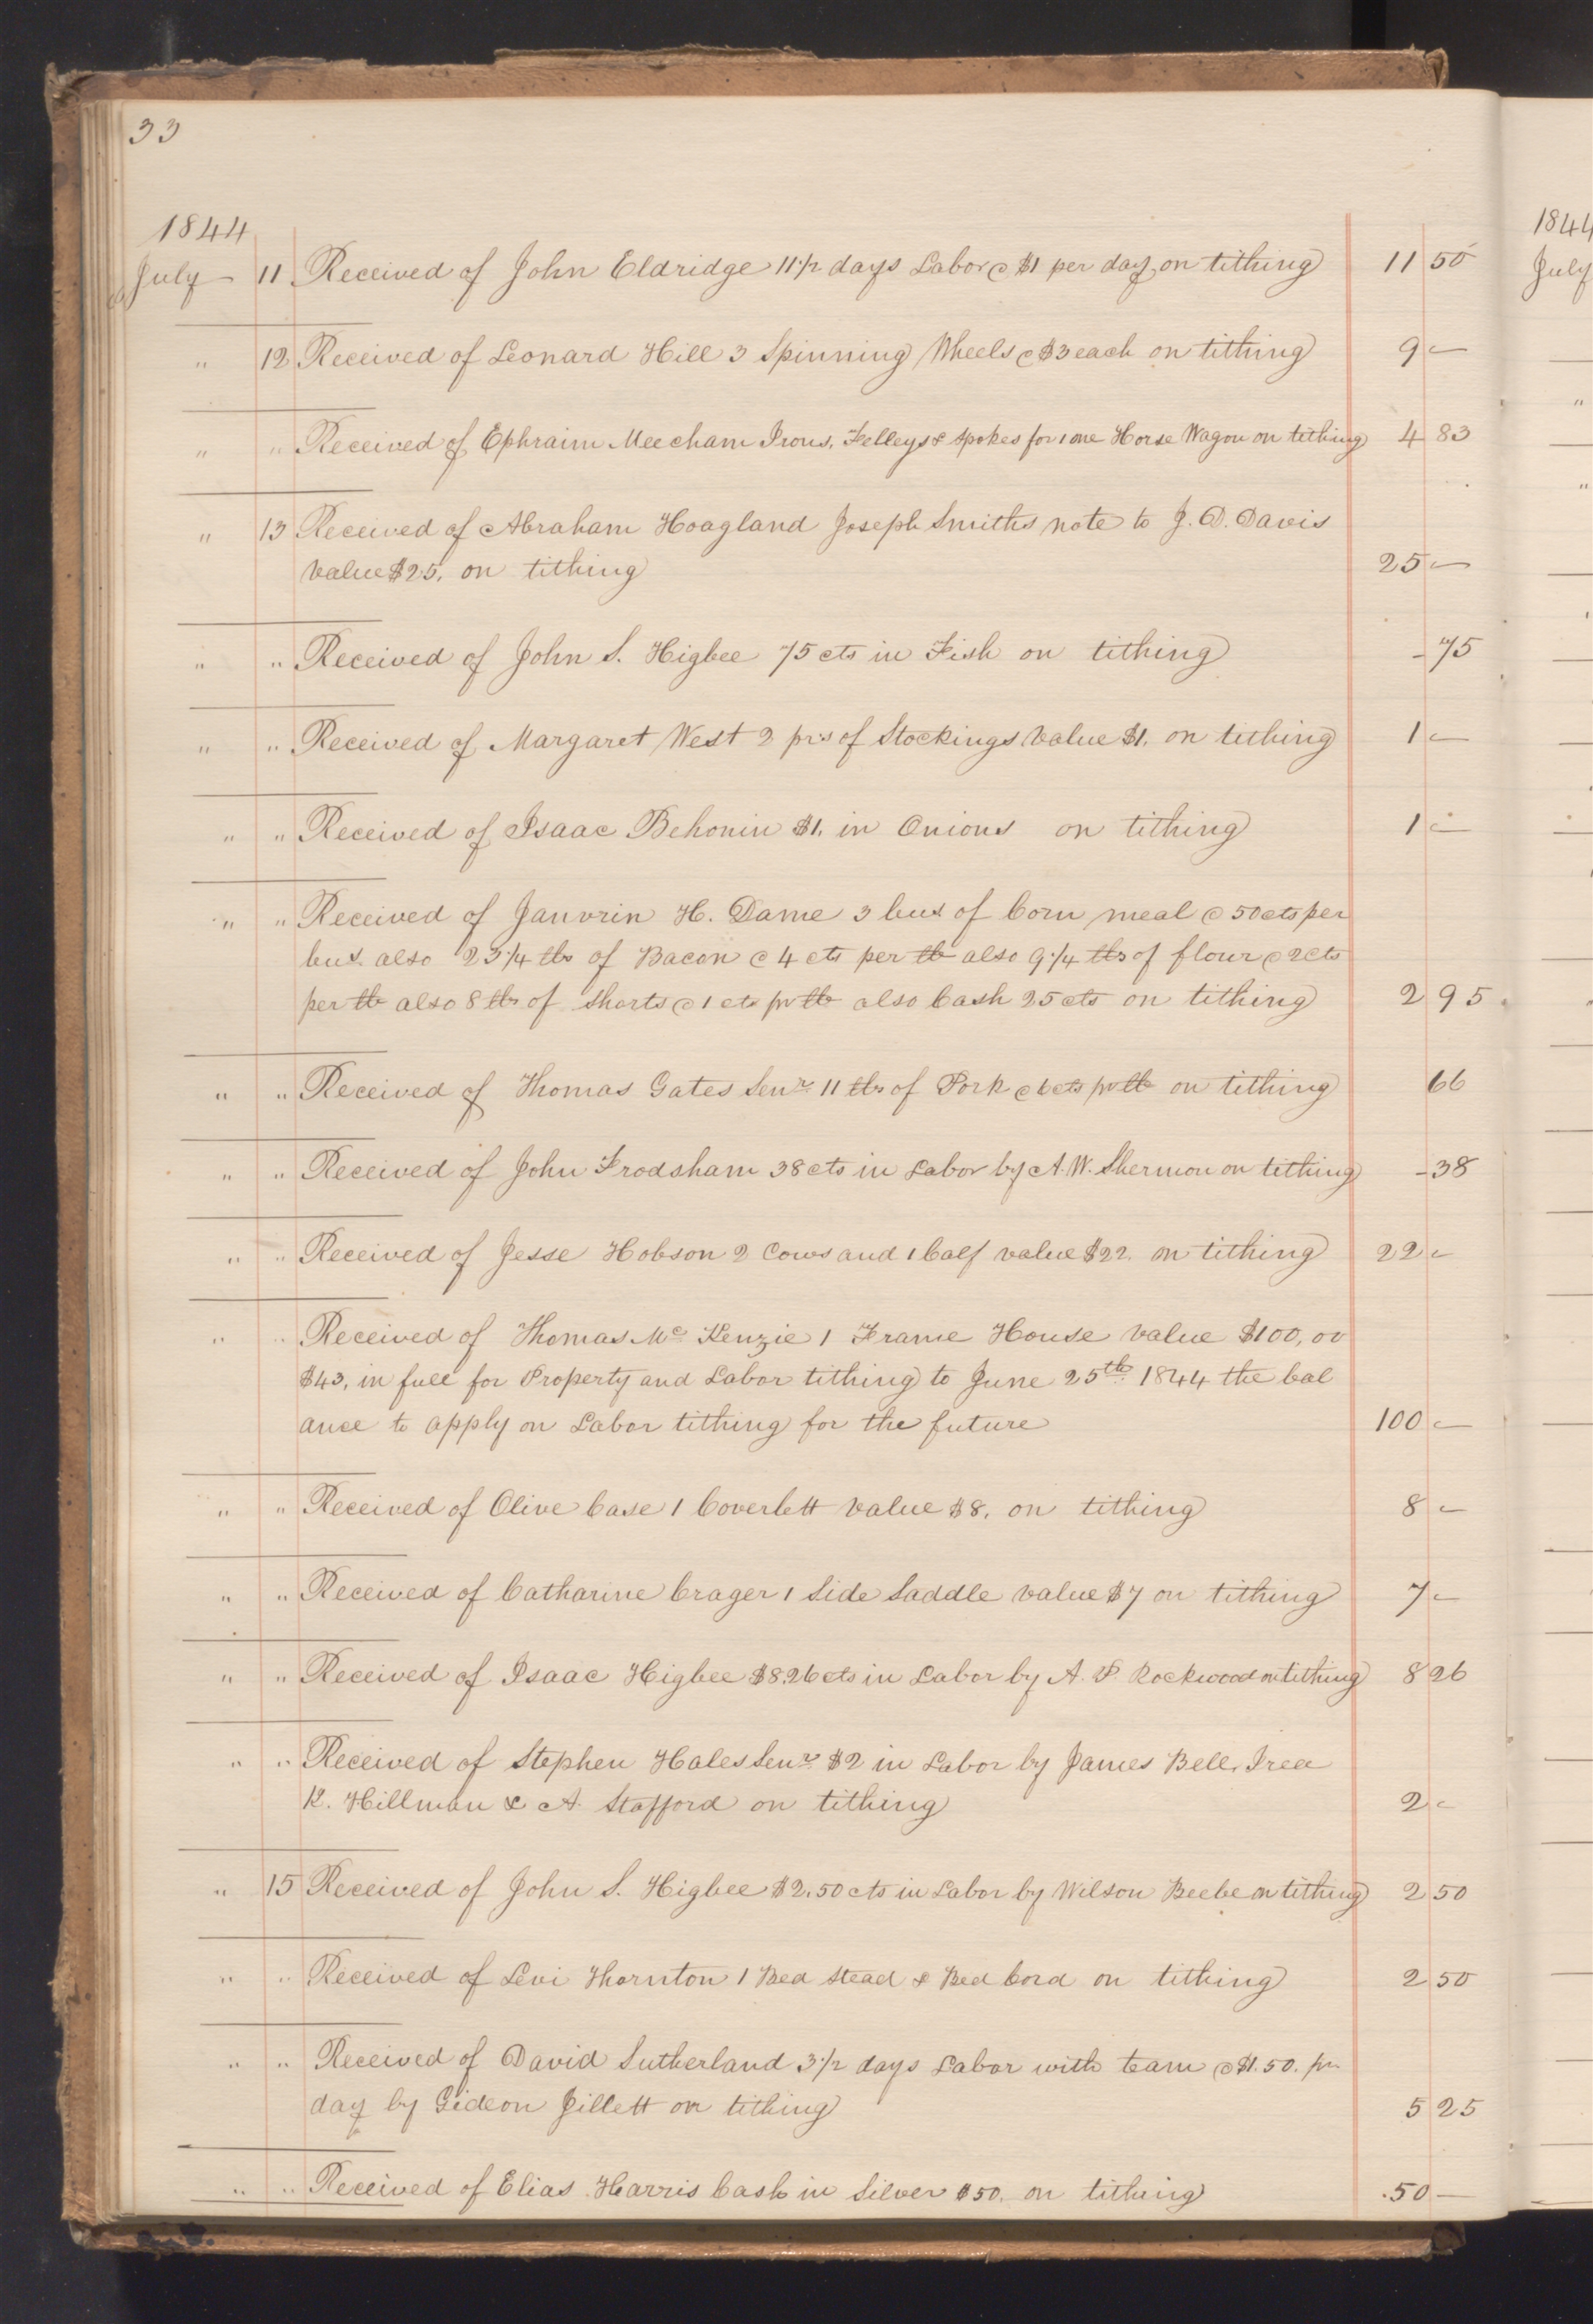 33
1844
July 11 Received of John Eldridge 11 1/2 days Labor @ $1 per day, on tithing 11 50
" 12 Received of Leonard Hill 3 Spinning Wheels @ $3 each on tithing 9 —
" " Received of Ephraim Meecham Irons, Felleys & Spokes for 1 one Horse Wagon on tithing 4 83
" 13 Received of Abraham Hoagland Joseph Smiths note to J. D. Davis
value $25, on tithing 25 —
" " Received of John S. Higbee 75 cts in Fish on tithing - 75
" " Received of Margaret West 2 prs of Stockings value $1, on tithing 1 —
" " Received of Isaac Behonin $1, in Onions on tithing 1 —
" " Received of Janvrin H. Dame 3 bus of Corn meal @ 50 cts per
bus. also 23 1/4 lbs of Bacon @ 4 cts per lb also 9 1/4 lbs of flour @ 2 cts
per lb also 8 lbs of Shorts @ 1 cts pr lb also Cash 25 cts on tithing 2 95
" " Received of Thomas Gates Senr 11 lbs of Pork @ 6 cts pr lb on tithing 66
" " Received of John Frodsham 38 cts in Labor by A. W. Shermon on tithing - 38
" " Received of Jesse Hobson 2 Cows and 1 Calf value $22. on tithing 22 —
" " Received of Thomas Mc Kenzie 1 Frame House value $100,00
$43, in full for Property and Labor tithing to June 25th 1844 the bal
ance to apply on Labor tithing for the future 100 —
" " Received of Olive Case 1 Coverlett value $8, on tithing 8 —
" " Received of Catharine Crager 1 Side Saddle value $7 on tithing 7 —
" " Received of Isaac Higbee $8.26 cts in Labor by A. P. Rockwood on tithing 8 26
" " Received of Stephen Hales Senr $2 in Labor by James Bell, Irea
K. Hillman & A. Stafford on tithing 2 —
" 15 Received of John S. Higbee $2.50 cts in Labor by Wilson Beebe on tithing 2 50
" " Received of Levi Thornton 1 Bed Stead & Bed Cord on tithing 2 50
" " Received of David Sutherland 3 1/2 days Labor with team @ $1.50. pr
day by Gideon Jillett on tithing 5 25
" " Received of Elias Harris Cash in Silver $50. on tithing 50 —
1844
July
"
"